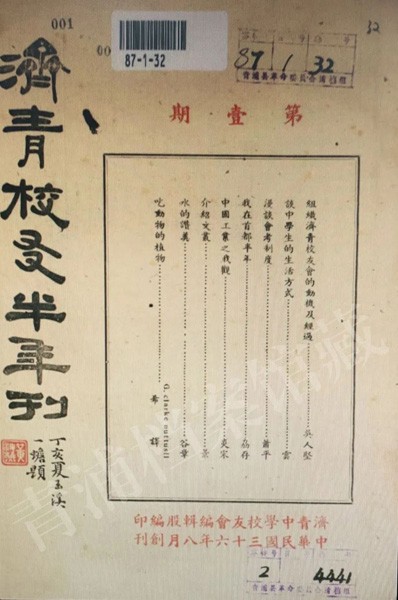 001
32
87-1-32
87 1 32
青浦縣革命委員會清檔組
第壹期
濟青校友半年刊
丁亥夏玉溪
一塘題
組織濟青校友會的動機及經過 吳人堅
談中學生的生活方式 雲
漫談會考制度 蕭平
我在首都半年
中國工業之我觀 奕宋
介紹文叢 景
水的讚美 谷韋
吃動物的植物 G. clarke nuttall 希譯
濟青中學校友會編輯股編印
中華民國三十六年八月創刊
2 4441
青浦檔案館藏